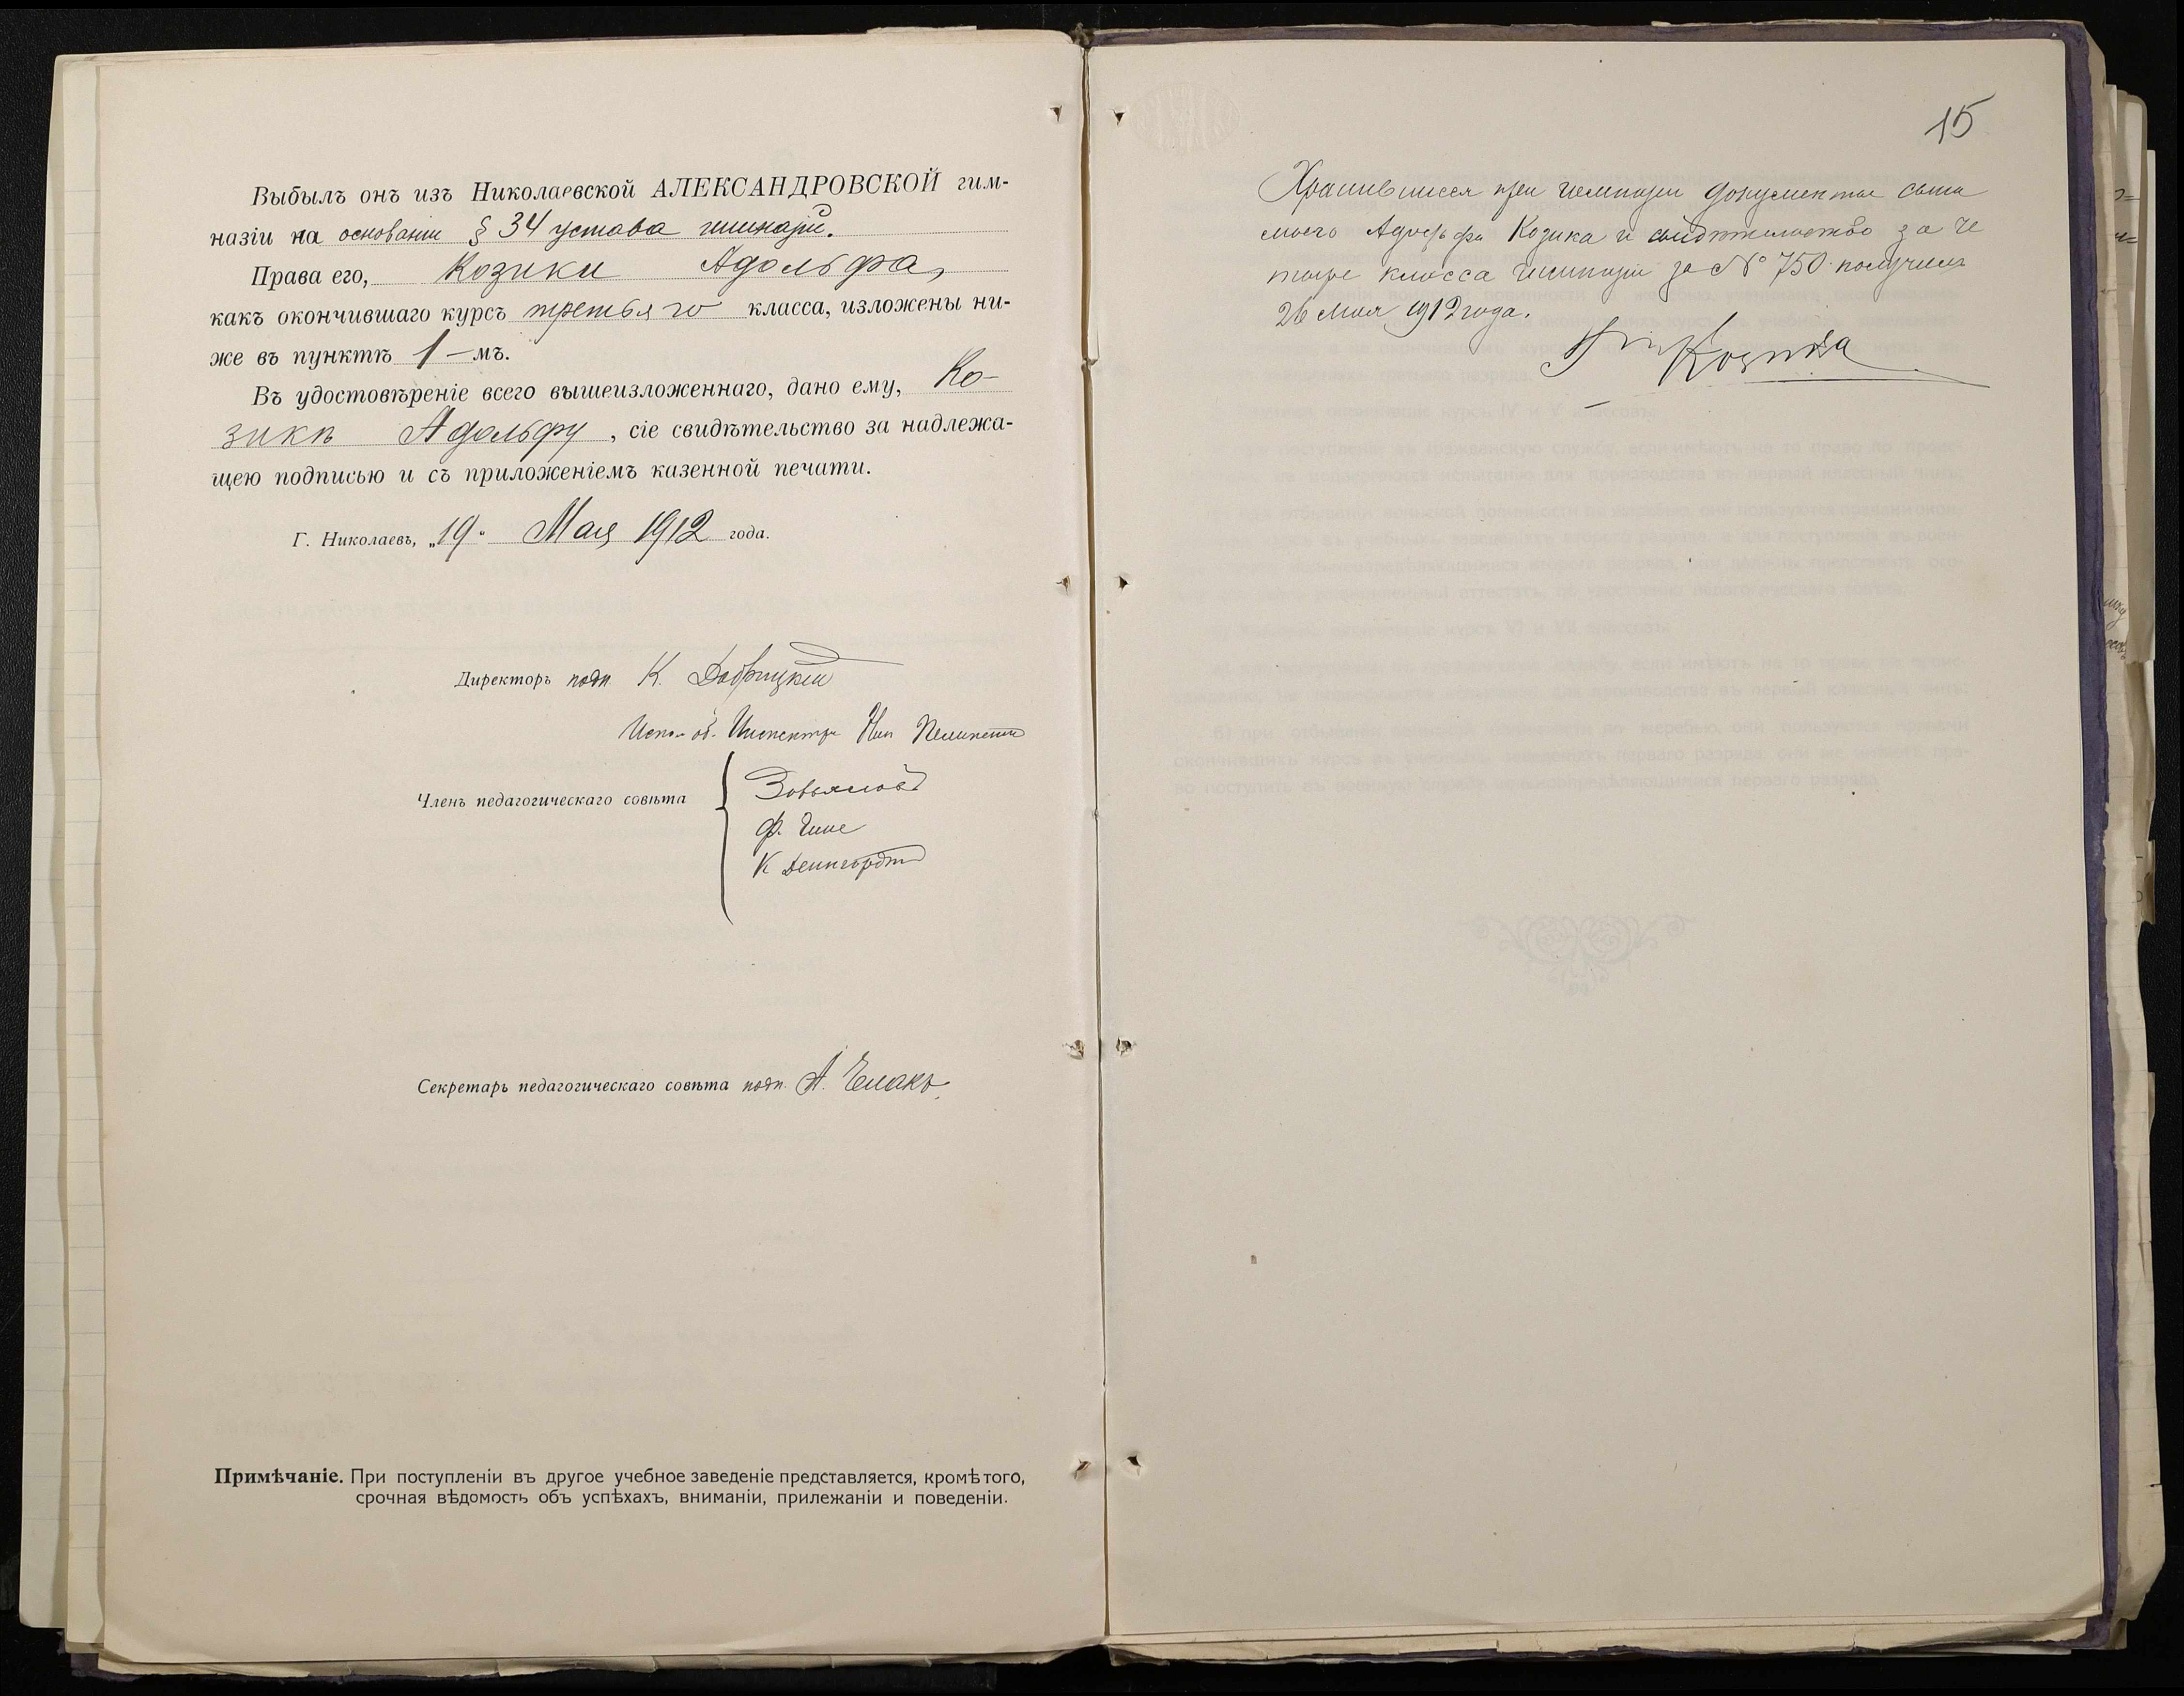 Выбылъ онъ изъ Николаевской АЛЕКСАНДРОВСКОЙ гим-
назіи на основаніи § 34 устава гимназіи.
Права его, Козики Адольфа,
какъ окончившаго курсъ третьяго класса, изложены ни-
же въ пунктѣ 1-мъ.
Въ удостовѣреніе всего вышеизложеннаго, дано ему, Ко-
зикѣ Адольфу, сіе свидѣтельство за надлежа-
щею подписью и съ приложеніемъ казенной печати.
Г. Николаевъ, „19" Мая 1912 года.
Директоръ подп. К.
Исп. об. Инспектора
Членъ педагогическаго совѣта
Ф.
К
Секретарь педагогическаго совѣта подп. А.
Примѣчаніе. При поступленіи въ другое учебное заведеніе представляется, кромѣ того,
срочная вѣдомость объ успѣхахъ, вниманіи, прилежаніи и поведеніи.
15
Хранившиеся при гимназіи документы сына
моего Адольфа Козика и свидѣтельство за че
тыре класса гимназіи за № 750 получилъ
26 Мая 1912 года.
Козика